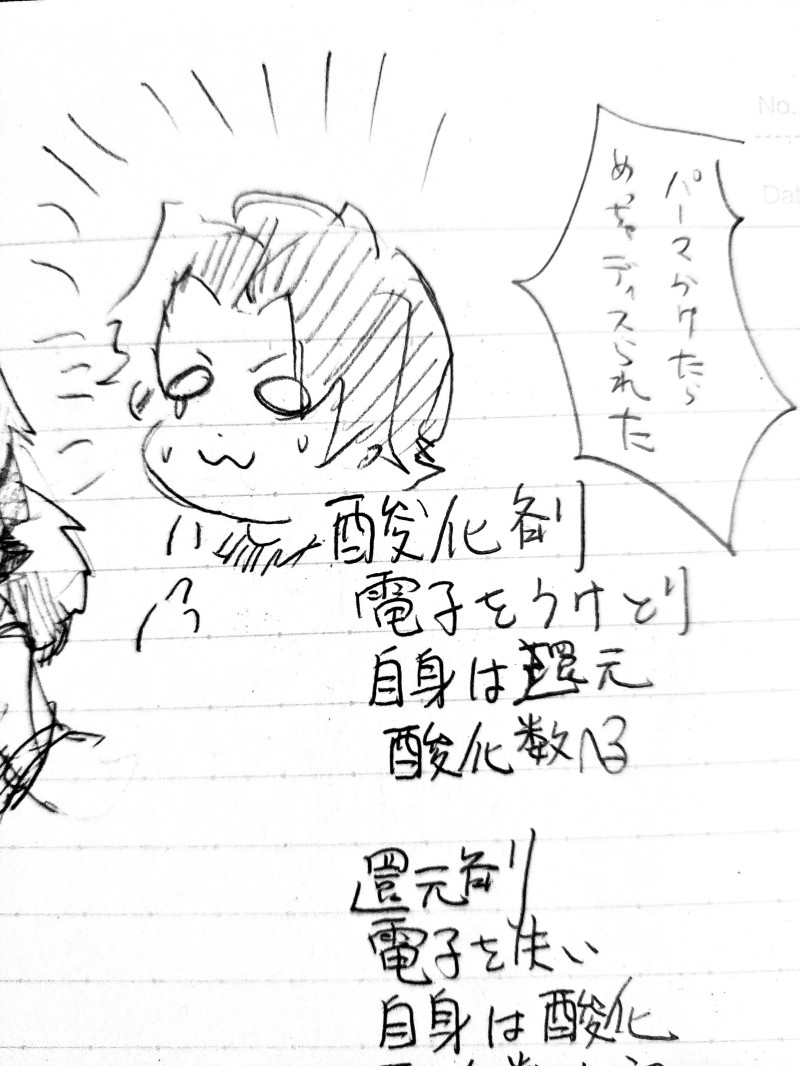 No.
Dat
パーマかけたら
めっちゃディスられた
酸化剤
電子をうけとり
自身は還元
酸化数へる
還元剤
電子を失い
自身は酸化